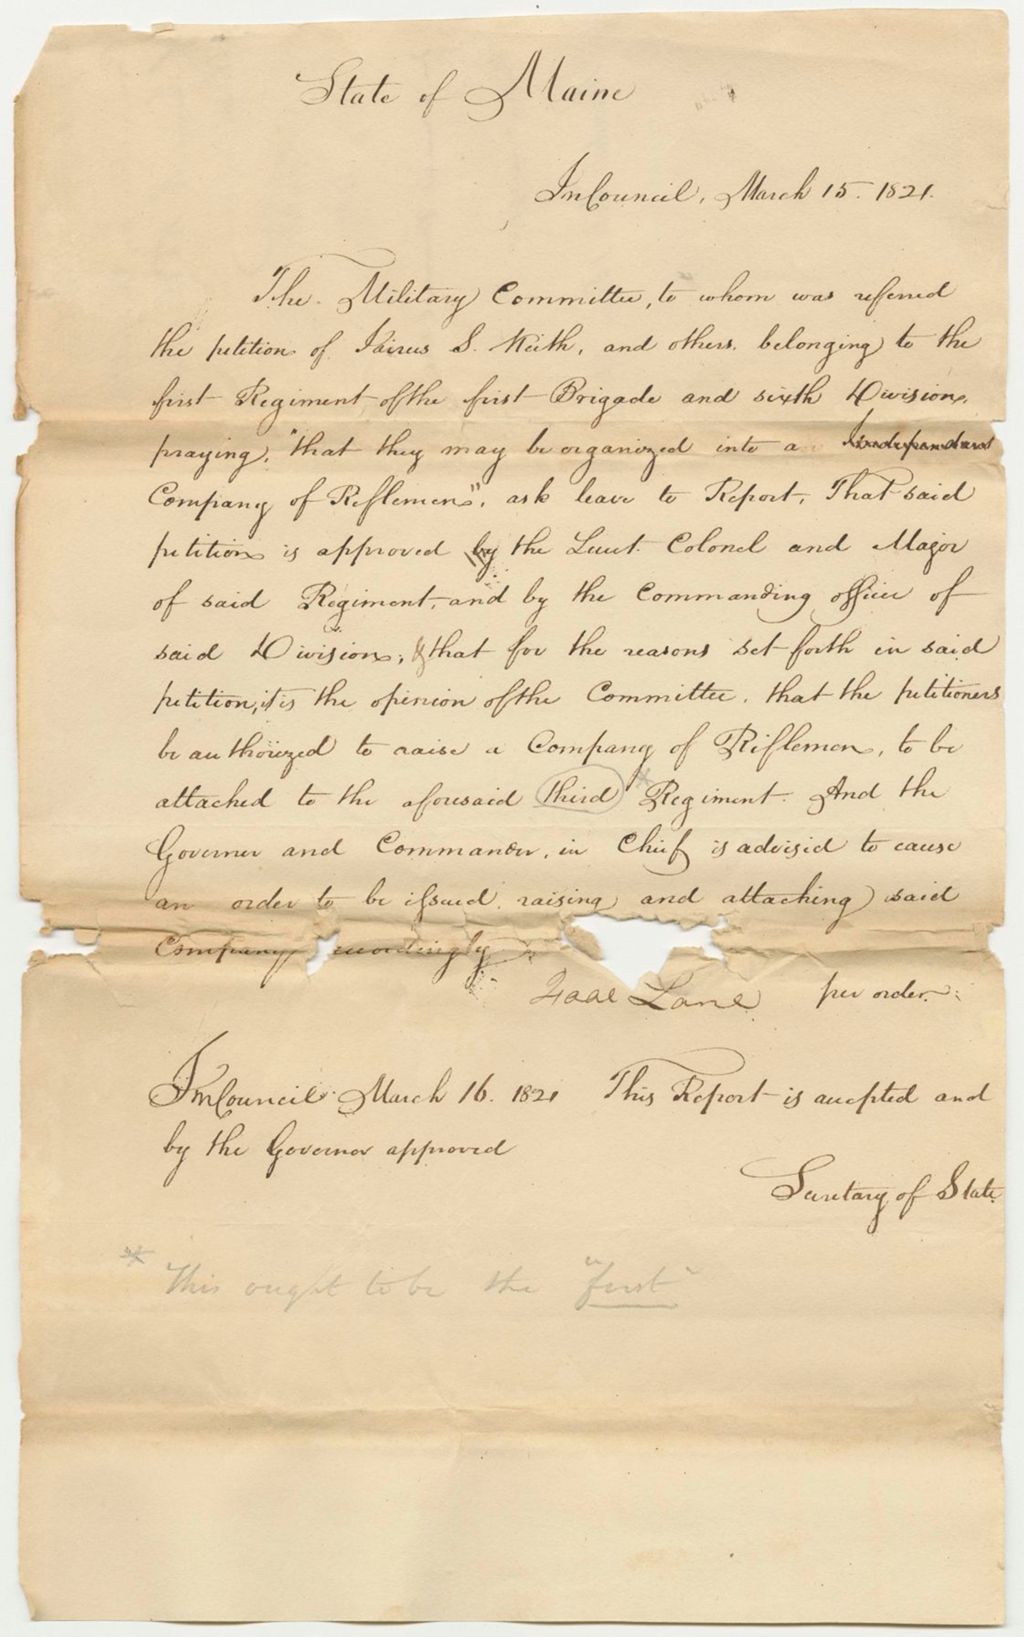 State of Maine
In Council, March 15. 1821.
The Military Committee, to whom was referred
the petition of Jairus S. Keith, and others, belonging to the
first Regiment of the first Brigade and sixth Division,
praying, "that they may be organized into a Independent
Company of Reflemen", ask leave to Report, That said
petition is approved by the Lieut. Colonel and Major
of said Regiment, and by the Commanding officer of
said Division; & that for the reasons set forth in said
petition, it is the opinion of the Committee, that the petitioners
be authorized to raise a Company of Riflemen, to be
attached to the aforesaid third * Regiment. And the
Governor and Commander, in Chief is advised to cause
an order to be issued, raising and attaching said
Company accordingly
Isaac Lane per order.
In Council March 16. 1821 This Report is accepted and
by the Governor approved
Secretary of State
* This ought to be the "first"